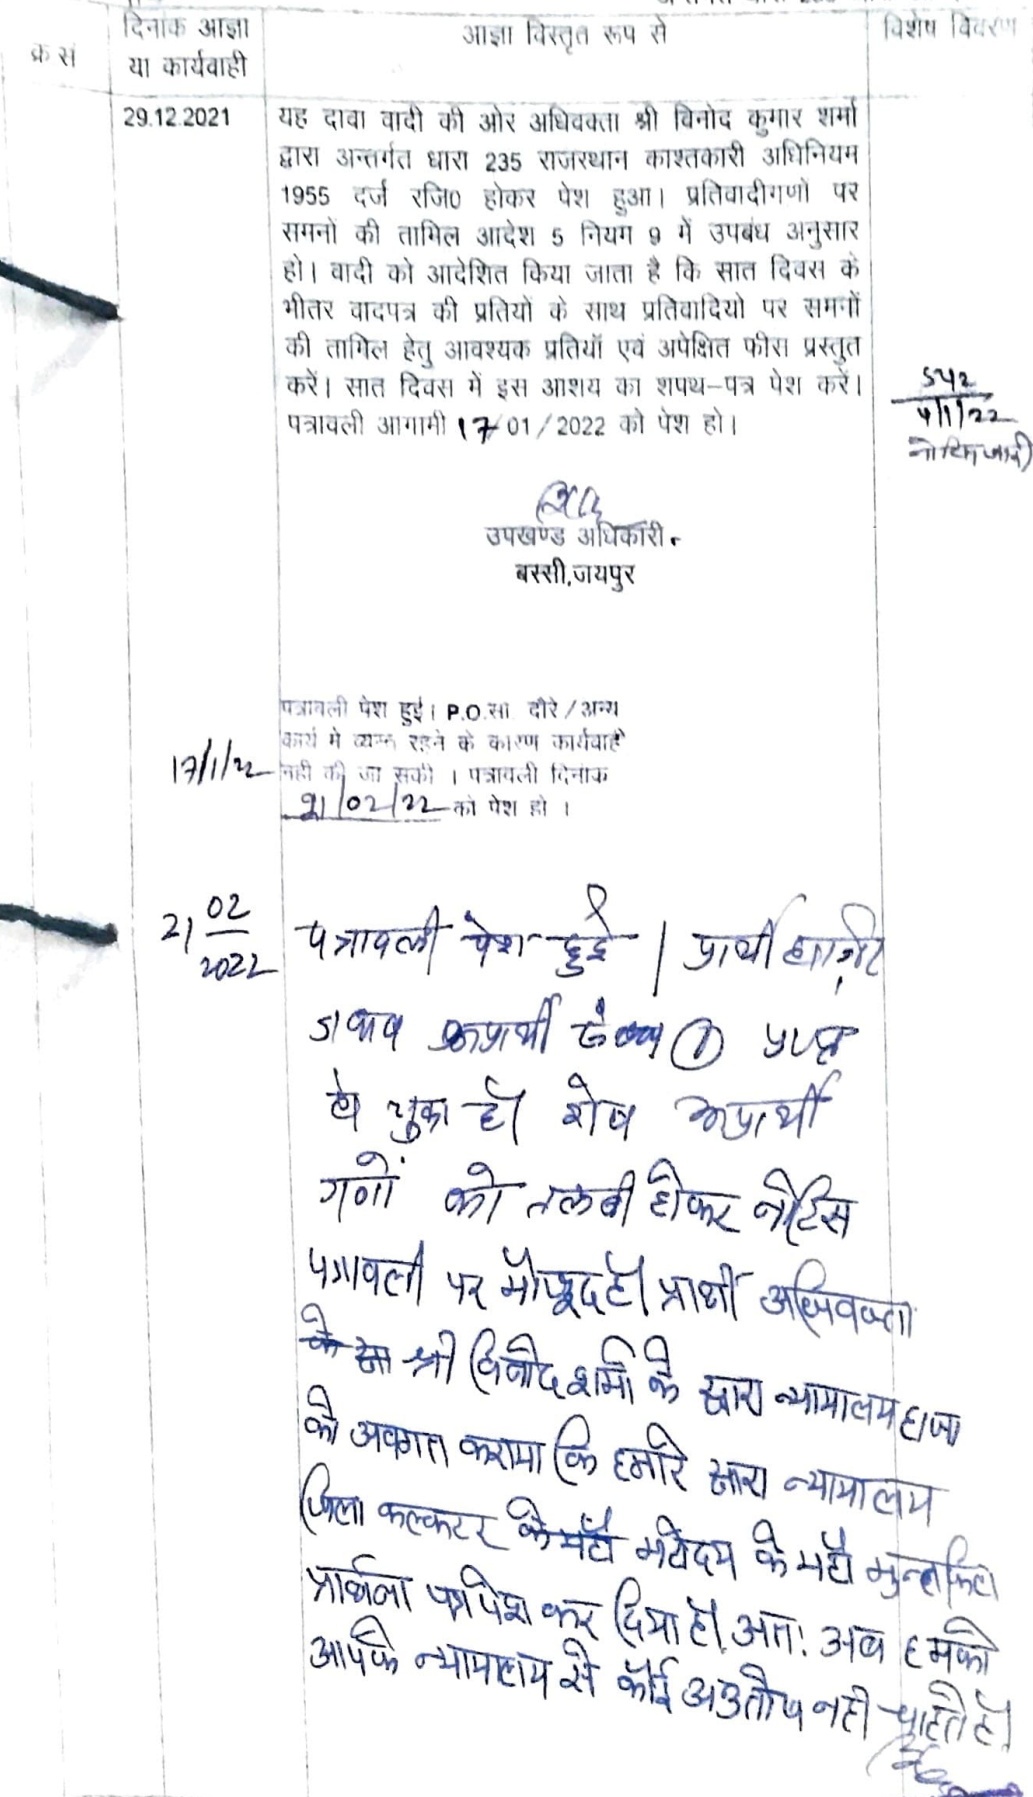 क्र सं
दिनांक आज्ञा
या कार्यवाही
आज्ञा विस्तृत रूप से
विशेष विवरण
29.12.2021
यह दावा वादी की ओर अधिवक्ता श्री विनोद कुमार शर्मा
द्वारा अन्तर्गत धारा 235 राजस्थान काश्तकारी अधिनियम
1955 दर्ज रजि0 होकर पेश हुआ। प्रतिवादीगणों पर
समनों की तामिल आदेश 5 नियम 9 में उपबंध अनुसार
हो। वादी को आदेशित किया जाता है कि सात दिवस के
भीतर वादपत्र की प्रतियों के साथ प्रतिवादियो पर समनों
की तामिल हेतु आवश्यक प्रतियॉ एवं अपेक्षित फीस प्रस्तुत
करें। सात दिवस में इस आशय का शपथ–पत्र पेश करें।
पत्रावली आगामी 17/01/2022 को पेश हो।
542
4/1/22
नोटिस जारी
उपखण्ड अधिकारी
बस्सी,जयपुर
पत्रावली पेश हुई। P.O.सा. दौरे/अन्य
कार्य मे व्यस्त रहने के कारण कार्यवाही
17/1/22
नही की जा सकी । पत्रावली दिनांक
21/02/22 को पेश हो ।
21 02
2022
पत्रावली पेश हुई | प्रार्थी
जवाब अप्रार्थी ①
हो चुका है। शेष अप्रार्थी
गणों को तलबी होकर नोटिस
पत्रावली पर मौजूद है। प्रार्थी अधिवक्ता
श्री विनोद शर्मा के द्वारा न्यायालय हाजा
को अवगत कराया कि हमारे द्वारा न्यायालय
जिला कल्कटर महोदय के यहाँ मुन्तकिल
प्रार्थना पत्र पेश कर दिया है। अतः अब हमको
आपके न्यायालय से कोई अनुतोष नही चाहते है।